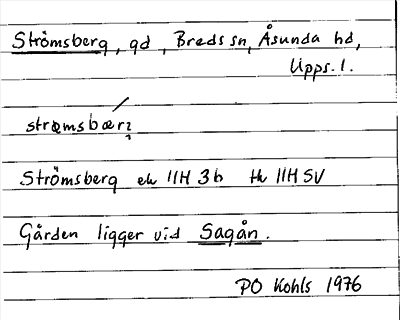 Strömsberg, gd, Breds sn, Åsunda hd,
Upps. l.
strømsbærʒ
Strömsberg ek 11H 3b tk 11H SV
Gården ligger vid Sagån.
PO Kohls 1976